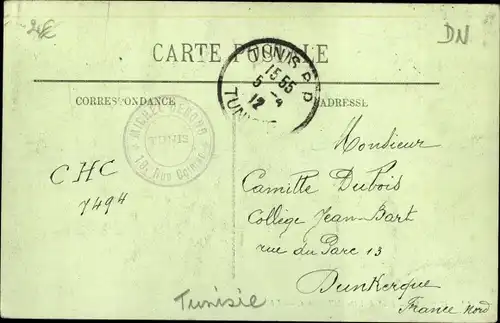 2€
DN
CARTE POSTALE
TUNIS R.P
15 55
5 -4
12
TUNISIE
CORRESPONDANCE
ADRESSE
TUNIS
18, Rue
CHC
7494
Monsieur
Camille Dubois
Collège Jean-Bart
rue du Parc 13
Dunkerque
France Nord
Tunisie